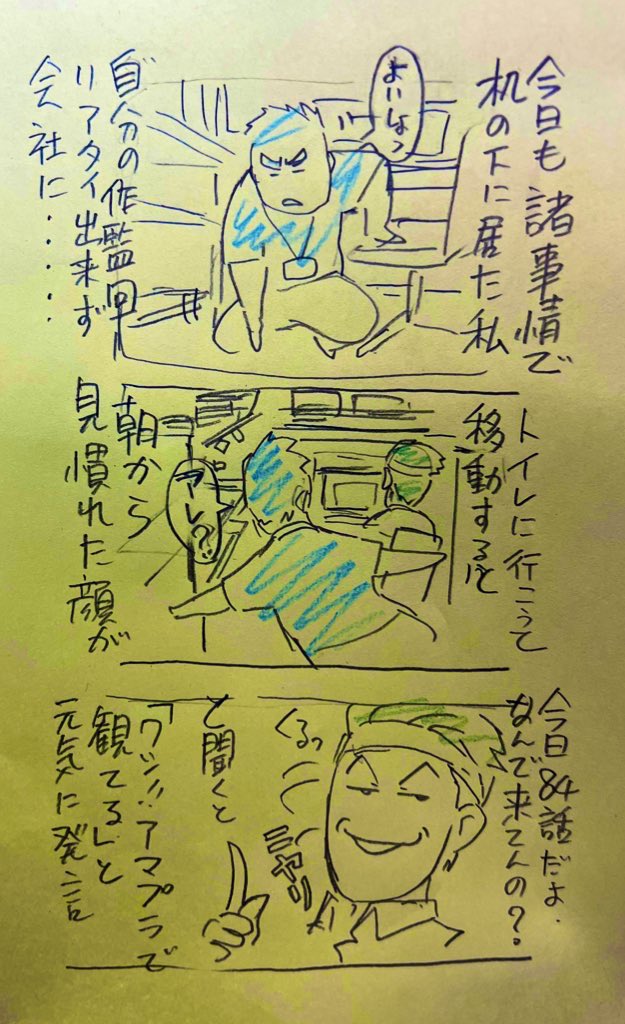 今日も諸事情で
机の下に居た私
よいしょっ
自分の作監回
リアタイ出来ず
会社に・・・・・
トイレに行こうて
移動すると
アレ?
朝から
見慣れた顔が
今日84話だよ.
なんで来てんの?
くるっ
ニヤリ
と聞くと
「ワシ!!アマプラで
観てる」と
元気に発言